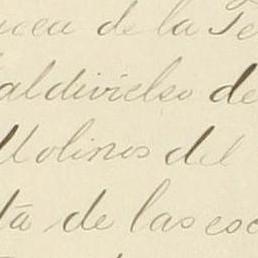 de la Te
aldivielso de
Molinos del
ta de las esc